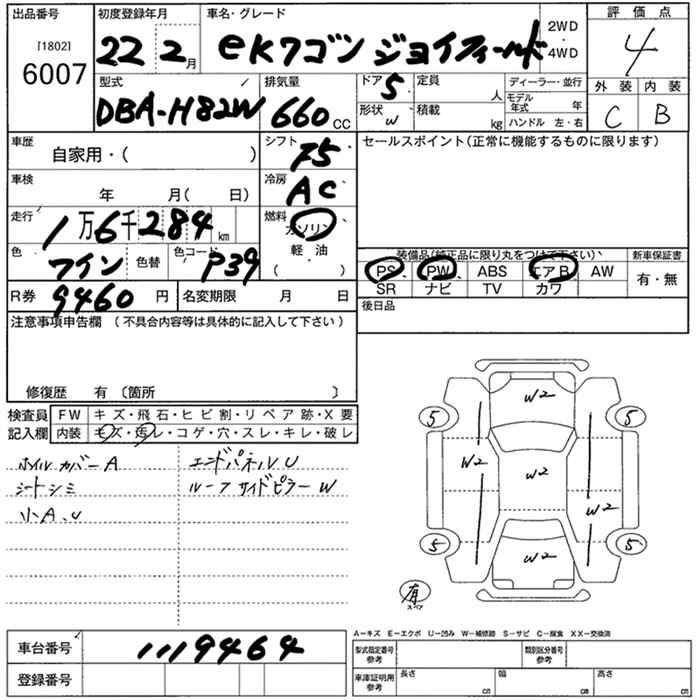 出品番号 [1802] 6007
初度登録年月 22 2月
車名・グレード eKワゴン ジョイフィールド 2WD・4WD
評価点 4
型式 DBA-H82W
排気量 660 CC
ドア 5
形状 W
定員 人
積載 kg
ディーラー・並行
モデル年式 年
ハンドル 左・右
外装 内装
C B
車歴 自家用・( )
シフト F5
セールスポイント(正常に機能するものに限ります)
車検 年 月( 日)
冷房 AC
走行 1万6千284km
燃料 ガソリン
軽油
( )
色 ワイン 色替 色コード P39
装備品(純正品に限り丸をつけて下さい) 新車保証書
PS PW ABS エアB AW 有・無
SR ナビ TV カワ
R券 9460円 名変期限 月 日
後日品
注意事項申告欄(不具合内容等は具体的に記入して下さい)
修復歴 有〔箇所 〕
検査員記入欄 FW キズ・飛石・ヒビ割・リペア跡・X要
内装 キズ・汚レ・コゲ・穴・スレ・キレ・破レ
ホイルカバーA エンドパネルU
シートシミ ルーフサイドピラーW
小A、U
W2
5 5
W2 W2 W2
5 5
W2
有
スペア
A−キズ E−エクボ U−凹み W−補修跡 S−サビ C−腐食 XX−交換済
車台番号 1119464
型式指定番号 参考 類別区分番号 参考
登録番号
車庫証明用 参考 長さ cm 幅 cm 高さ cm